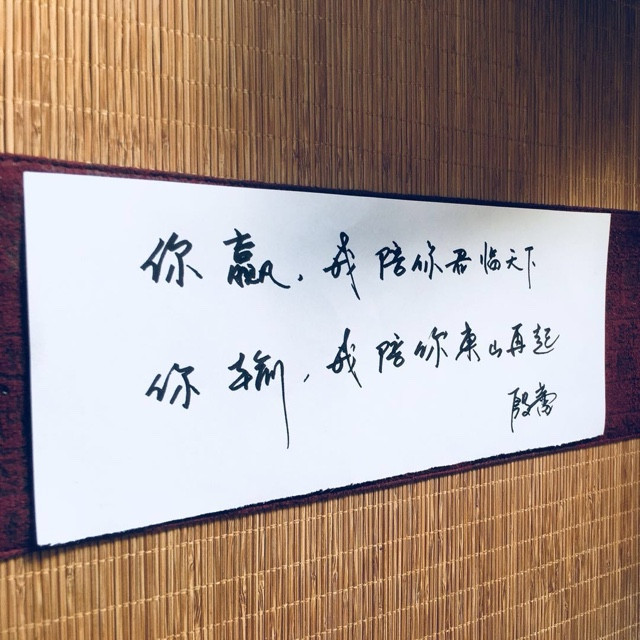 你赢，我陪你君临天下
你输，我陪你东山再起
殷雷